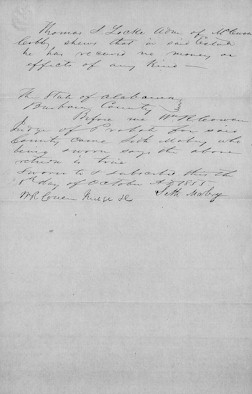 Thomas S Locke Adm of
Cobby shews that in said Estate
he has received no money or
effects of any Kind —
The State of Alabama
Barbour County
Before me Wm R Cowan
Judge of Probate for said
County came Seth Mabry who
being sworn says the above
return is true
Sworn to & subscribed this the
8th day of October AD 1855
WR Cowan Judge Seth Mabry